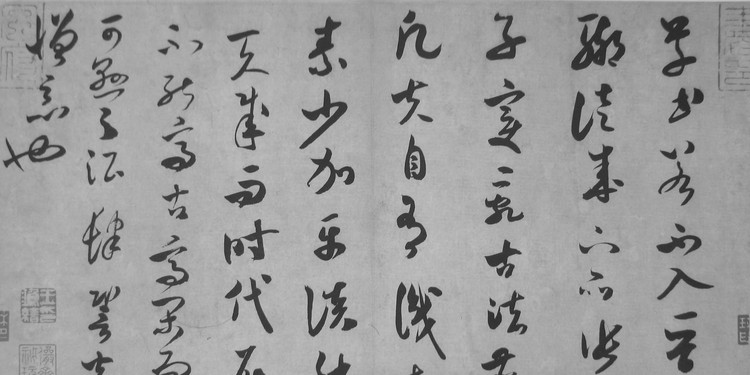 草書若不入晉
輒徒成下品張
子變亂古法
凡夫自有識
素少加平淡
天成而時代
不能高古高閑而
可懸之酒肆䛒
憎惡也